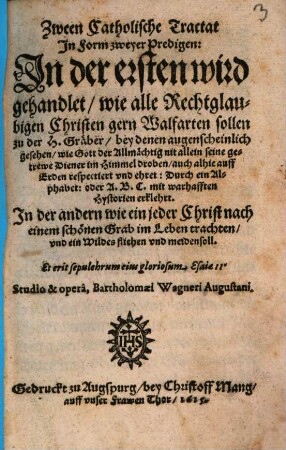 3
Zween Catholische Tractat
In Form zweyer Predigen:
In der ersten wird
gehandlet / wie alle Rechtglau-
bigen Christen gern Walfarten sollen
zu der H. Gräber / bey denen augenscheinlich
gesehen / wie Gott der Allmächtig nit allein seine ge-
trewe Diener im Himmel droben / auch alhie auff
Erden respectiert vnd ehret: Durch ein Al-
phabet: oder A. B. C. mit warhafften
Hystorien erklehrt.
In der andern wie ein jeder Christ nach
einem schönen Grab im Leben trachten /
vnd ein Wildes fliehen vnd meiden soll.
Et erit sepulchrum eius gloriosum. Esaiæ 11.
Studio & operâ, Bartholomæi Wagneri Augustani.
IHS
Gedruckt zu Augspurg / bey Christoff Mang /
auff vnser Frawen Thor / 1615.